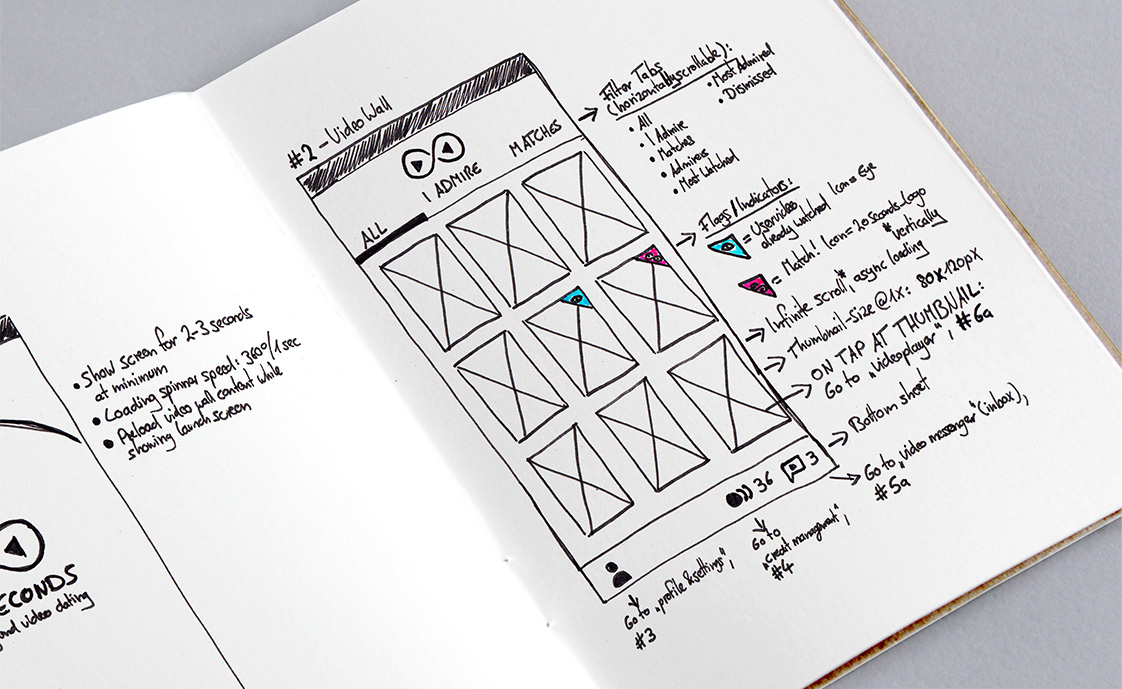 • Show screen for 2-3 seconds
at minimum
• Loading spinner speed: 360°/1sec
• Preload video wall content while
showing launch screen
ECONDS
ond video dating
#2 – Video Wall
ALL
I ADMIRE
MATCHES
36
3
Filter Tabs
(horizontally scrollable):
• All
• I Admire
• Matches
• Admirers
• Most Watched
• Most Admired
• Dismissed
Flags/Indicators:
= Uservideo
already watched
Icon = Eye
= Match! Icon = 20seconds-Logo
*vertically
Infinite scroll*, async loading
Thumbnail-Size @1x: 80x120px
ON TAP AT THUMBNAIL:
Go to „videoplayer", #6a
Bottom sheet
Go to „video messenger" (inbox),
#5a
Go to
„credit management",
#4
Go to „profile & settings",
#3